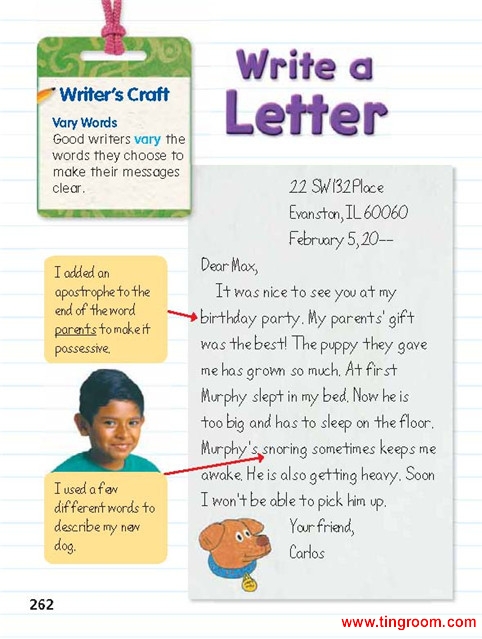 Writer's Craft
Vary Words
Good writers vary the
words they choose to
make their messages
clear.
Write a
Letter
22 SW 132 Place
Evanston, IL 60060
February 5, 20--
Dear Max,
It was nice to see you at my
birthday party. My parents' gift
was the best! The puppy they gave
me has grown so much. At first
Murphy slept in my bed. Now he is
too big and has to sleep on the floor.
Murphy's snoring sometimes keeps me
awake. He is also getting heavy. Soon
I won't be able to pick him up.
Your friend,
Carlos
I added an
apostrophe to the
end of the word
parents to make it
possessive.
I used a few
different words to
describe my new
dog.
262
www.tingroom.com